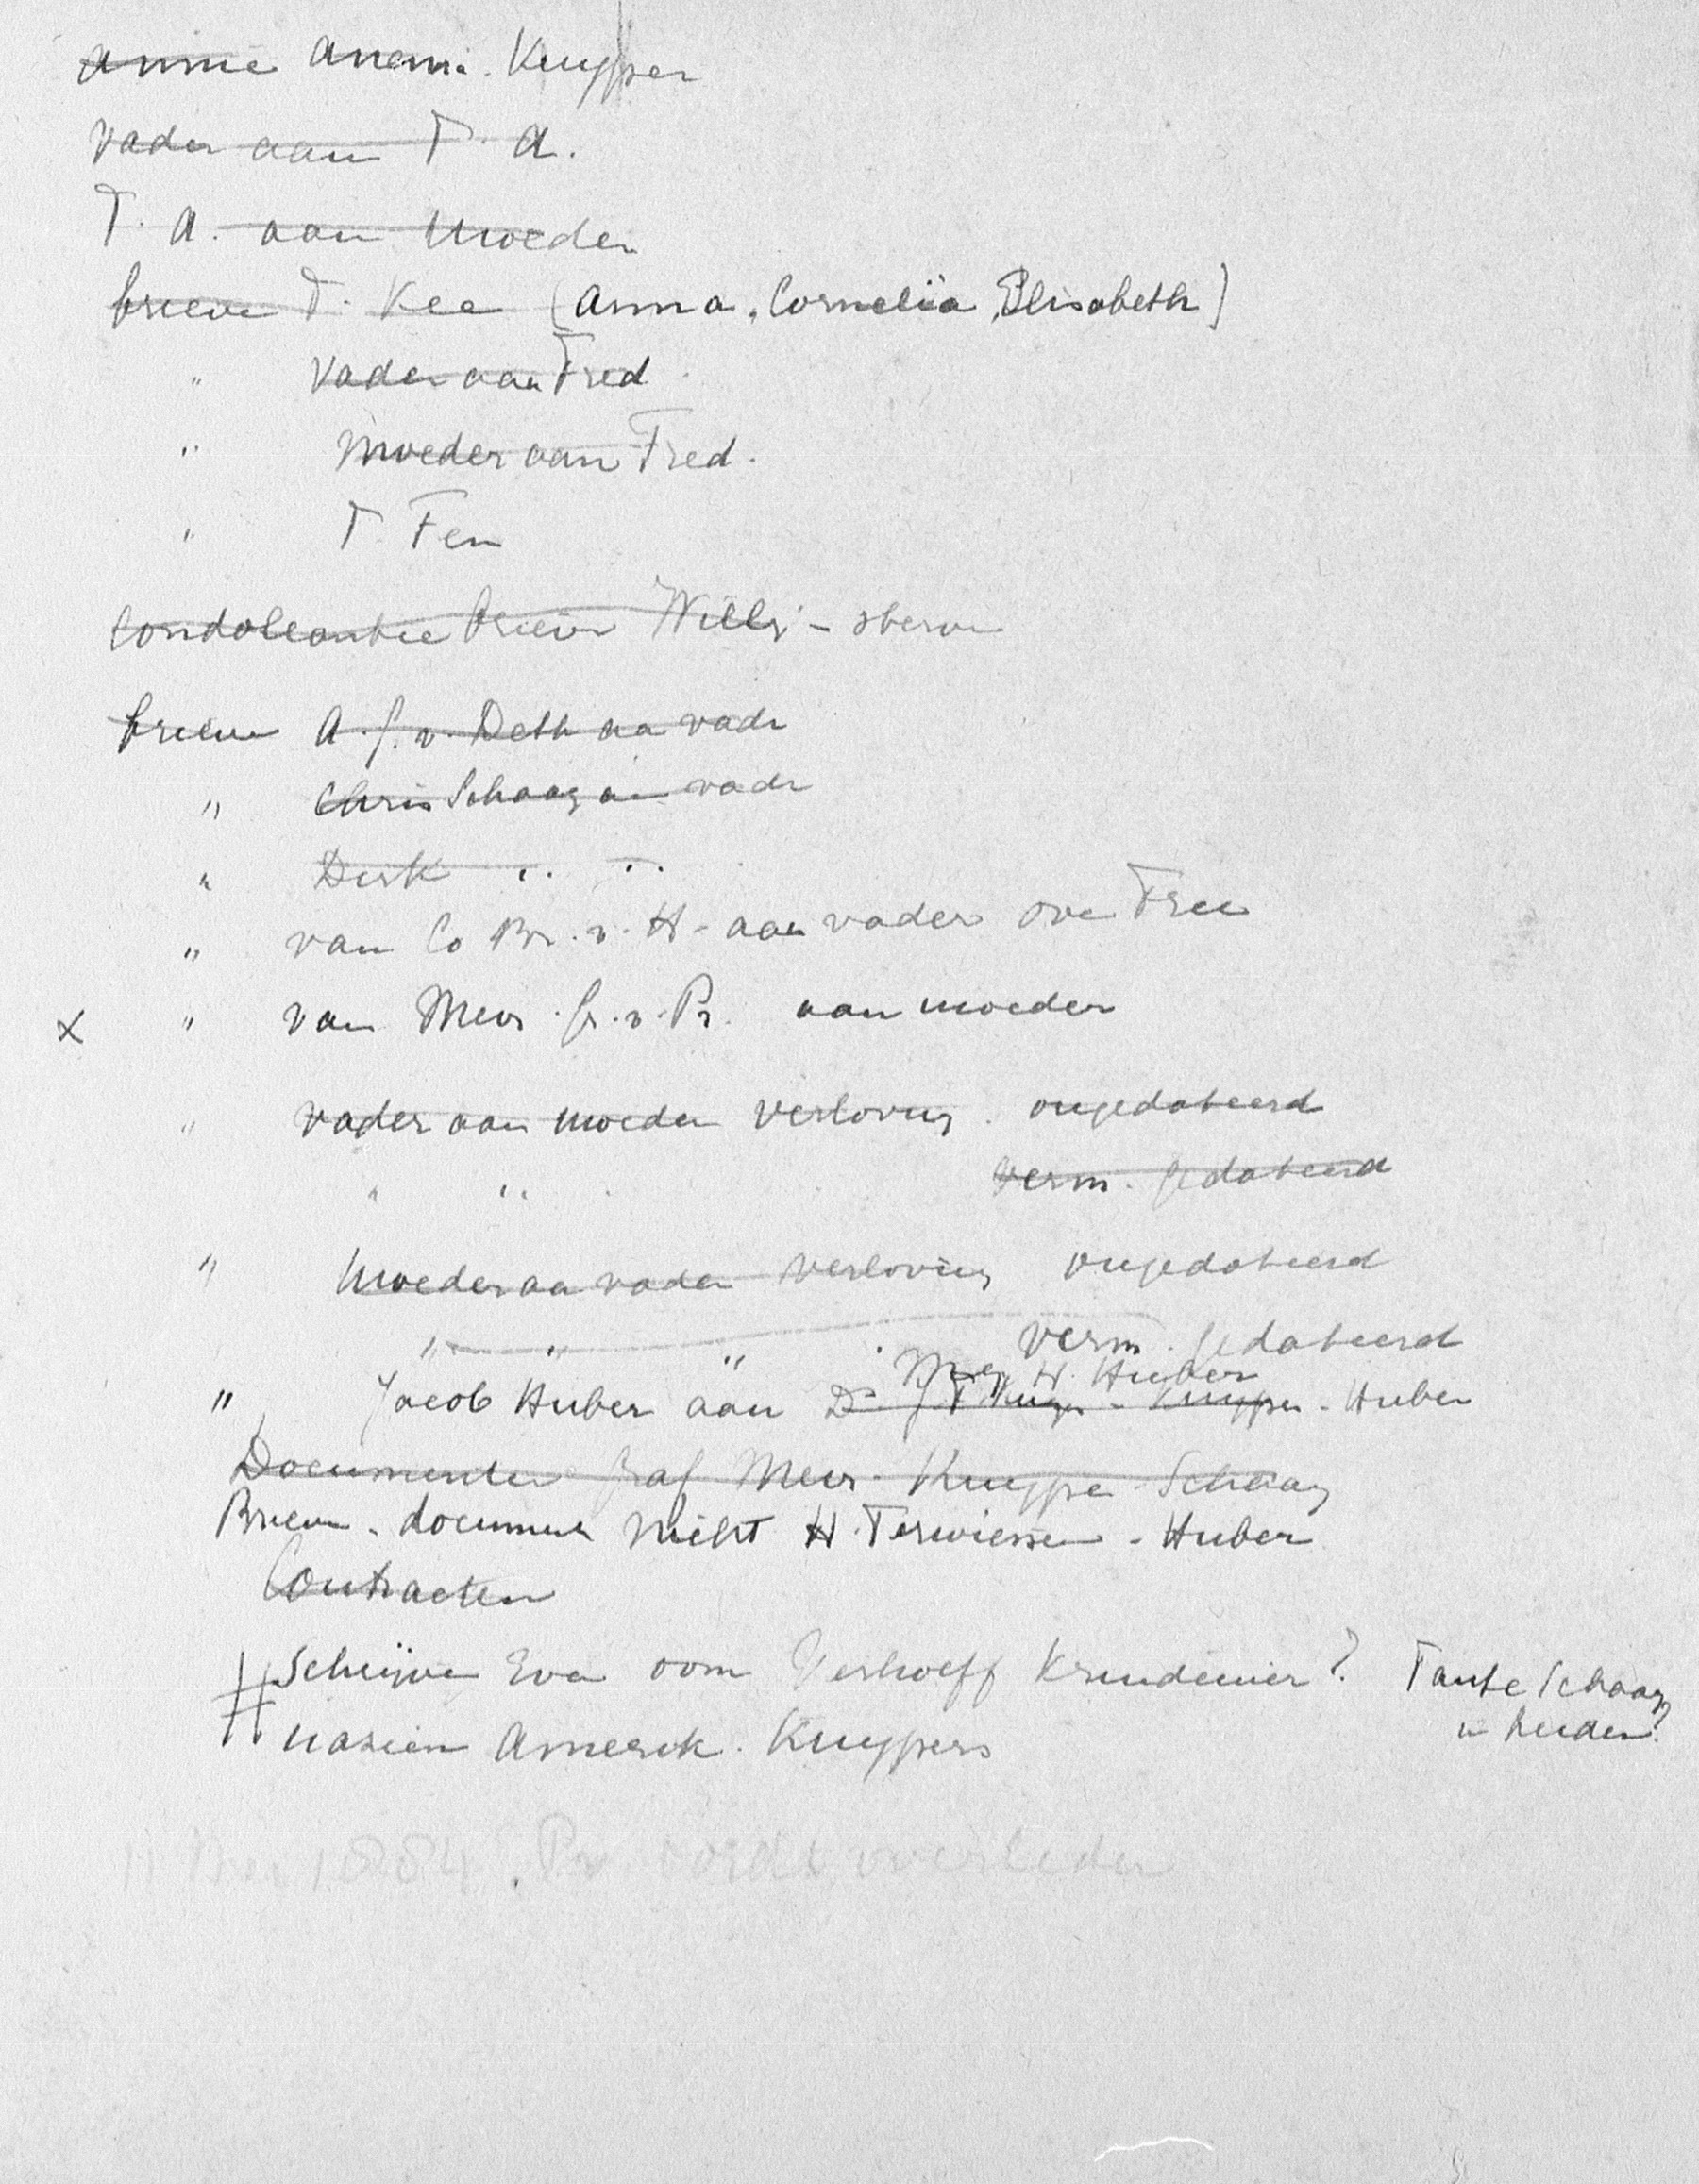 Annie Anemi. Kuyper
Vader aan T. A.
T. A. aan Moeder
brieven T. Kee (Anna, Cornelia, Elisabeth)
" Vader aan Fred
" Moeder aan Fred.
" T. Fen
Condoleantie brieven Willy - sterven
brieven A. J. v. Deth aa vader
" Chris Schaay aan vader
" Dirk " "
" van Co Br. v. H. aan vader over Free
x " van Mevr. G. v. Pr. aan moeder
" vader aan moeder verloving ongedateerd
" " verm. gedateerd
" Moeder aa vader verloving ongedateerd
" " " verm. gedateerd
Mej H. Huber
" Jacob Huber aan Ds Kuyper - Huber
Documenten graf Mevr. Kuyper Schaay
Brieven - documen nicht H. Terwiessen - Huber
Contracten
# Schrijven Eva oom Verhoeff Krudenier? Tante Schaay
in Leiden?
nazien Amerik. Kuypers
1884 overleden